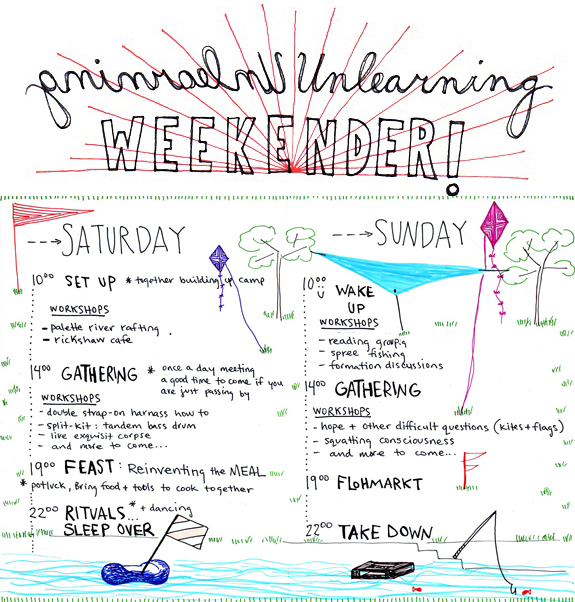 Unlearning Unlearning
WEEKENDER!
---> SATURDAY
10⁰⁰ SET UP * together building up camp
WORKSHOPS
- palette river rafting
- rickshaw cafe
14⁰⁰ GATHERING * once a day meeting
a good time to come if you
are just passing by
WORKSHOPS
- double strap-on harnass how to
- split-kit: tandem bass drum
- live exquisit corpse
- and more to come...
19⁰⁰ FEAST: Reinventing the MEAL
* potluck, Bring food + tools to cook together
22⁰⁰ RITUALS... * + dancing
SLEEP OVER
---> SUNDAY
10⁰⁰ WAKE
UP
WORKSHOPS
- reading group
- spree fishing
- formation discussions
14⁰⁰ GATHERING
WORKSHOPS
- hope + other difficult questions (kites + flags)
- squatting consciousness
- and more to come...
19⁰⁰ FLOHMARKT
22⁰⁰ TAKE DOWN